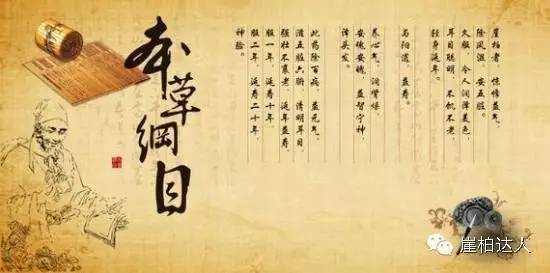 崖柏者，惊悸益气，
除风湿，安五脏。
久服，令人润泽美色，
耳目聪明，不饥不老，
轻身延年。
与阳道，益寿。
养心气，润肾燥，
安魂安魄，益智宁神，
泽头发。
此药除百病，益元气，
滋五脏六腑，清明耳目，
强壮不衰老，延年益寿，
服一年，延寿十年，
服二年，延寿二十年，
神验。
本草綱目
崖柏达人